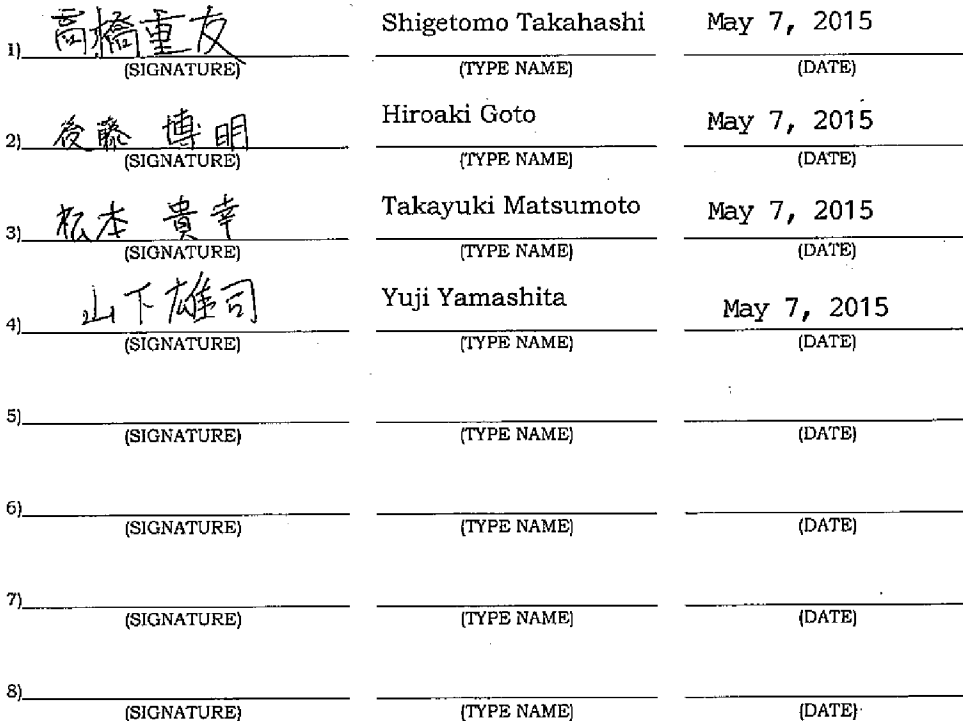 1) 高橋重友 Shigetomo Takahashi May 7, 2015
(SIGNATURE) (TYPE NAME) (DATE)
2) 後藤 博明 Hiroaki Goto May 7, 2015
(SIGNATURE) (TYPE NAME) (DATE)
3) 松本 貴幸 Takayuki Matsumoto May 7, 2015
(SIGNATURE) (TYPE NAME) (DATE)
4) 山下雄司 Yuji Yamashita May 7, 2015
(SIGNATURE) (TYPE NAME) (DATE)
5)
(SIGNATURE) (TYPE NAME) (DATE)
6)
(SIGNATURE) (TYPE NAME) (DATE)
7)
(SIGNATURE) (TYPE NAME) (DATE)
8)
(SIGNATURE) (TYPE NAME) (DATE)